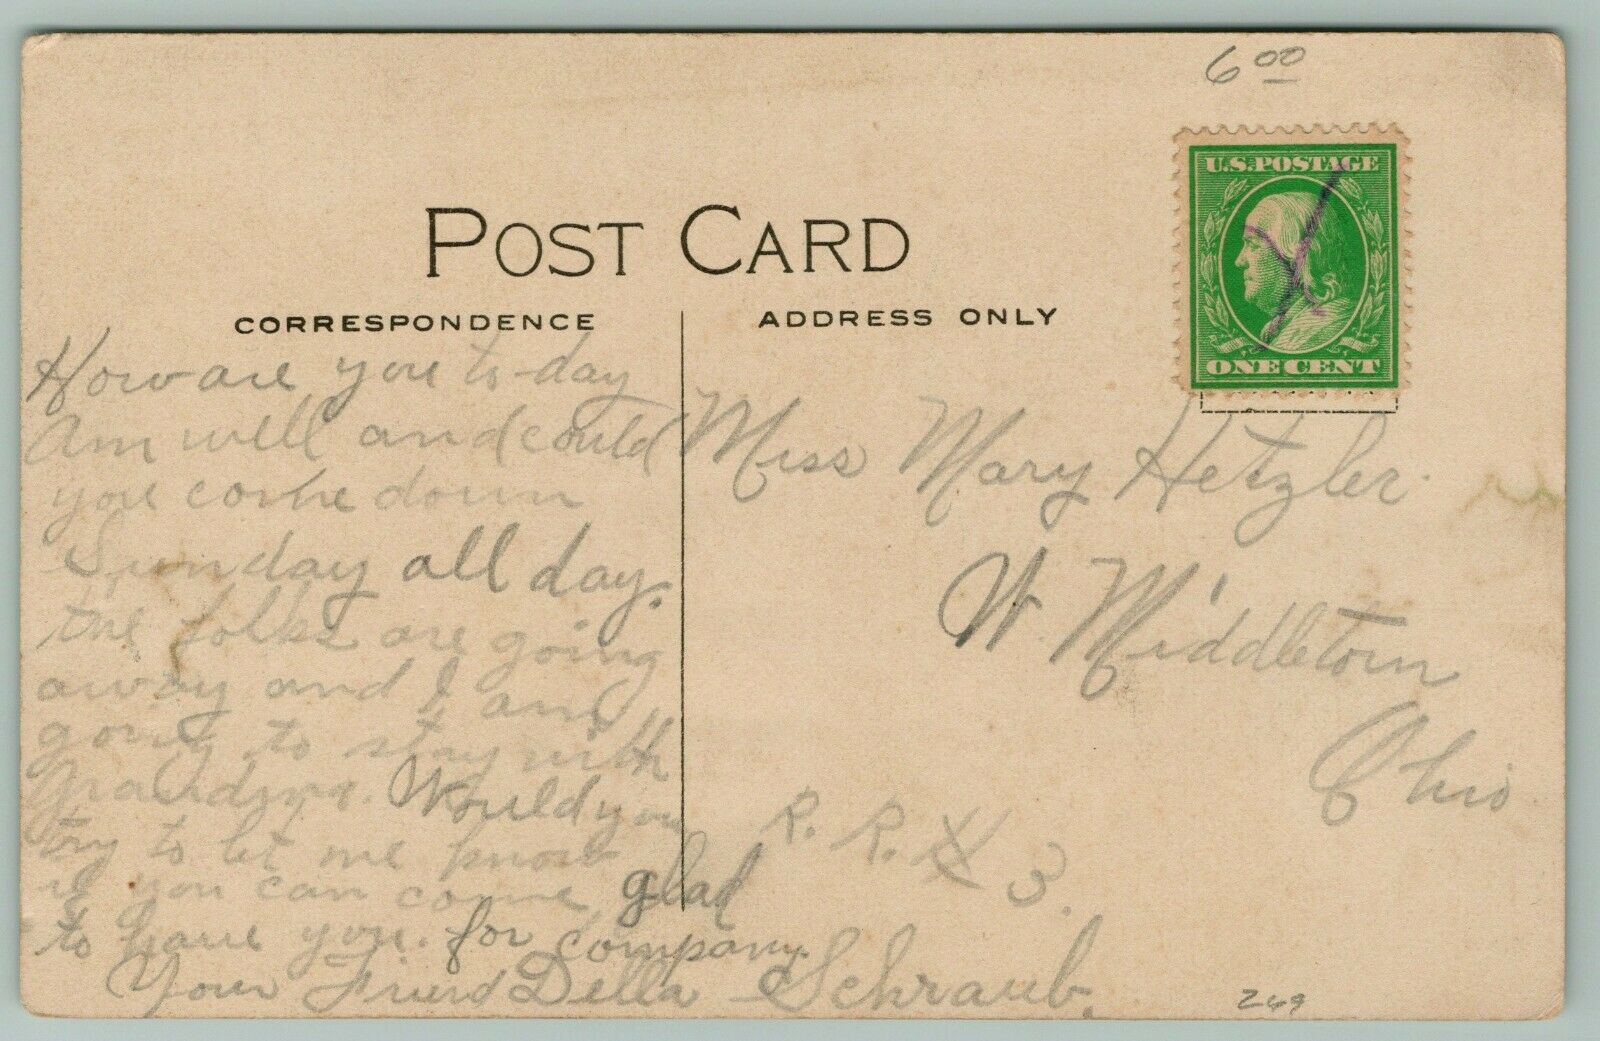 6 00
U.S. POSTAGE
ONE CENT
POST CARD
CORRESPONDENCE
ADDRESS ONLY
How are you to-day
Am well and could
you come down
Sunday all day.
the folks are going
away and I am
going to stay with
Grandma. Would you
try to let me know
if you can come, glad
to have you. for company.
Your Friend Della Schraub.
Miss Mary Hetzler.
W. Middletown
Ohio
R. R. 3.
269